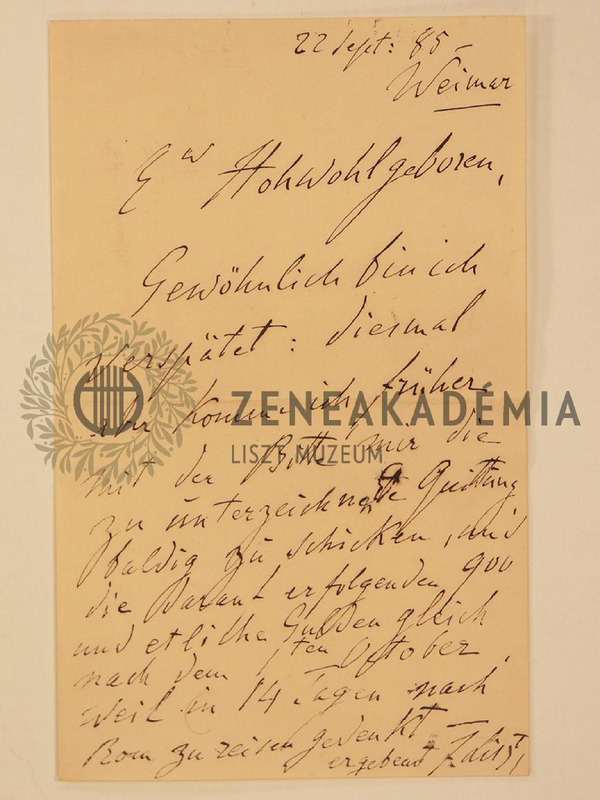 22 Sept: 85 –
Weimar
Ew Hohwohlgeboren,
Gewöhnlich bin ich
verspätet: diesmal
aber komme ich früher
mit der Bitte mir die
zu unterzeichnende Quittung
baldig zu schicken, und
die darauf erfolgenden 900
und etliche Gulden gleich
nach dem 1ten October,
weil in 14 Tagen nach
Rom zu reisen gedenkt –
ergebenst F. Liszt,
ZENEAKADÉMIA
LISZT MÚZEUM